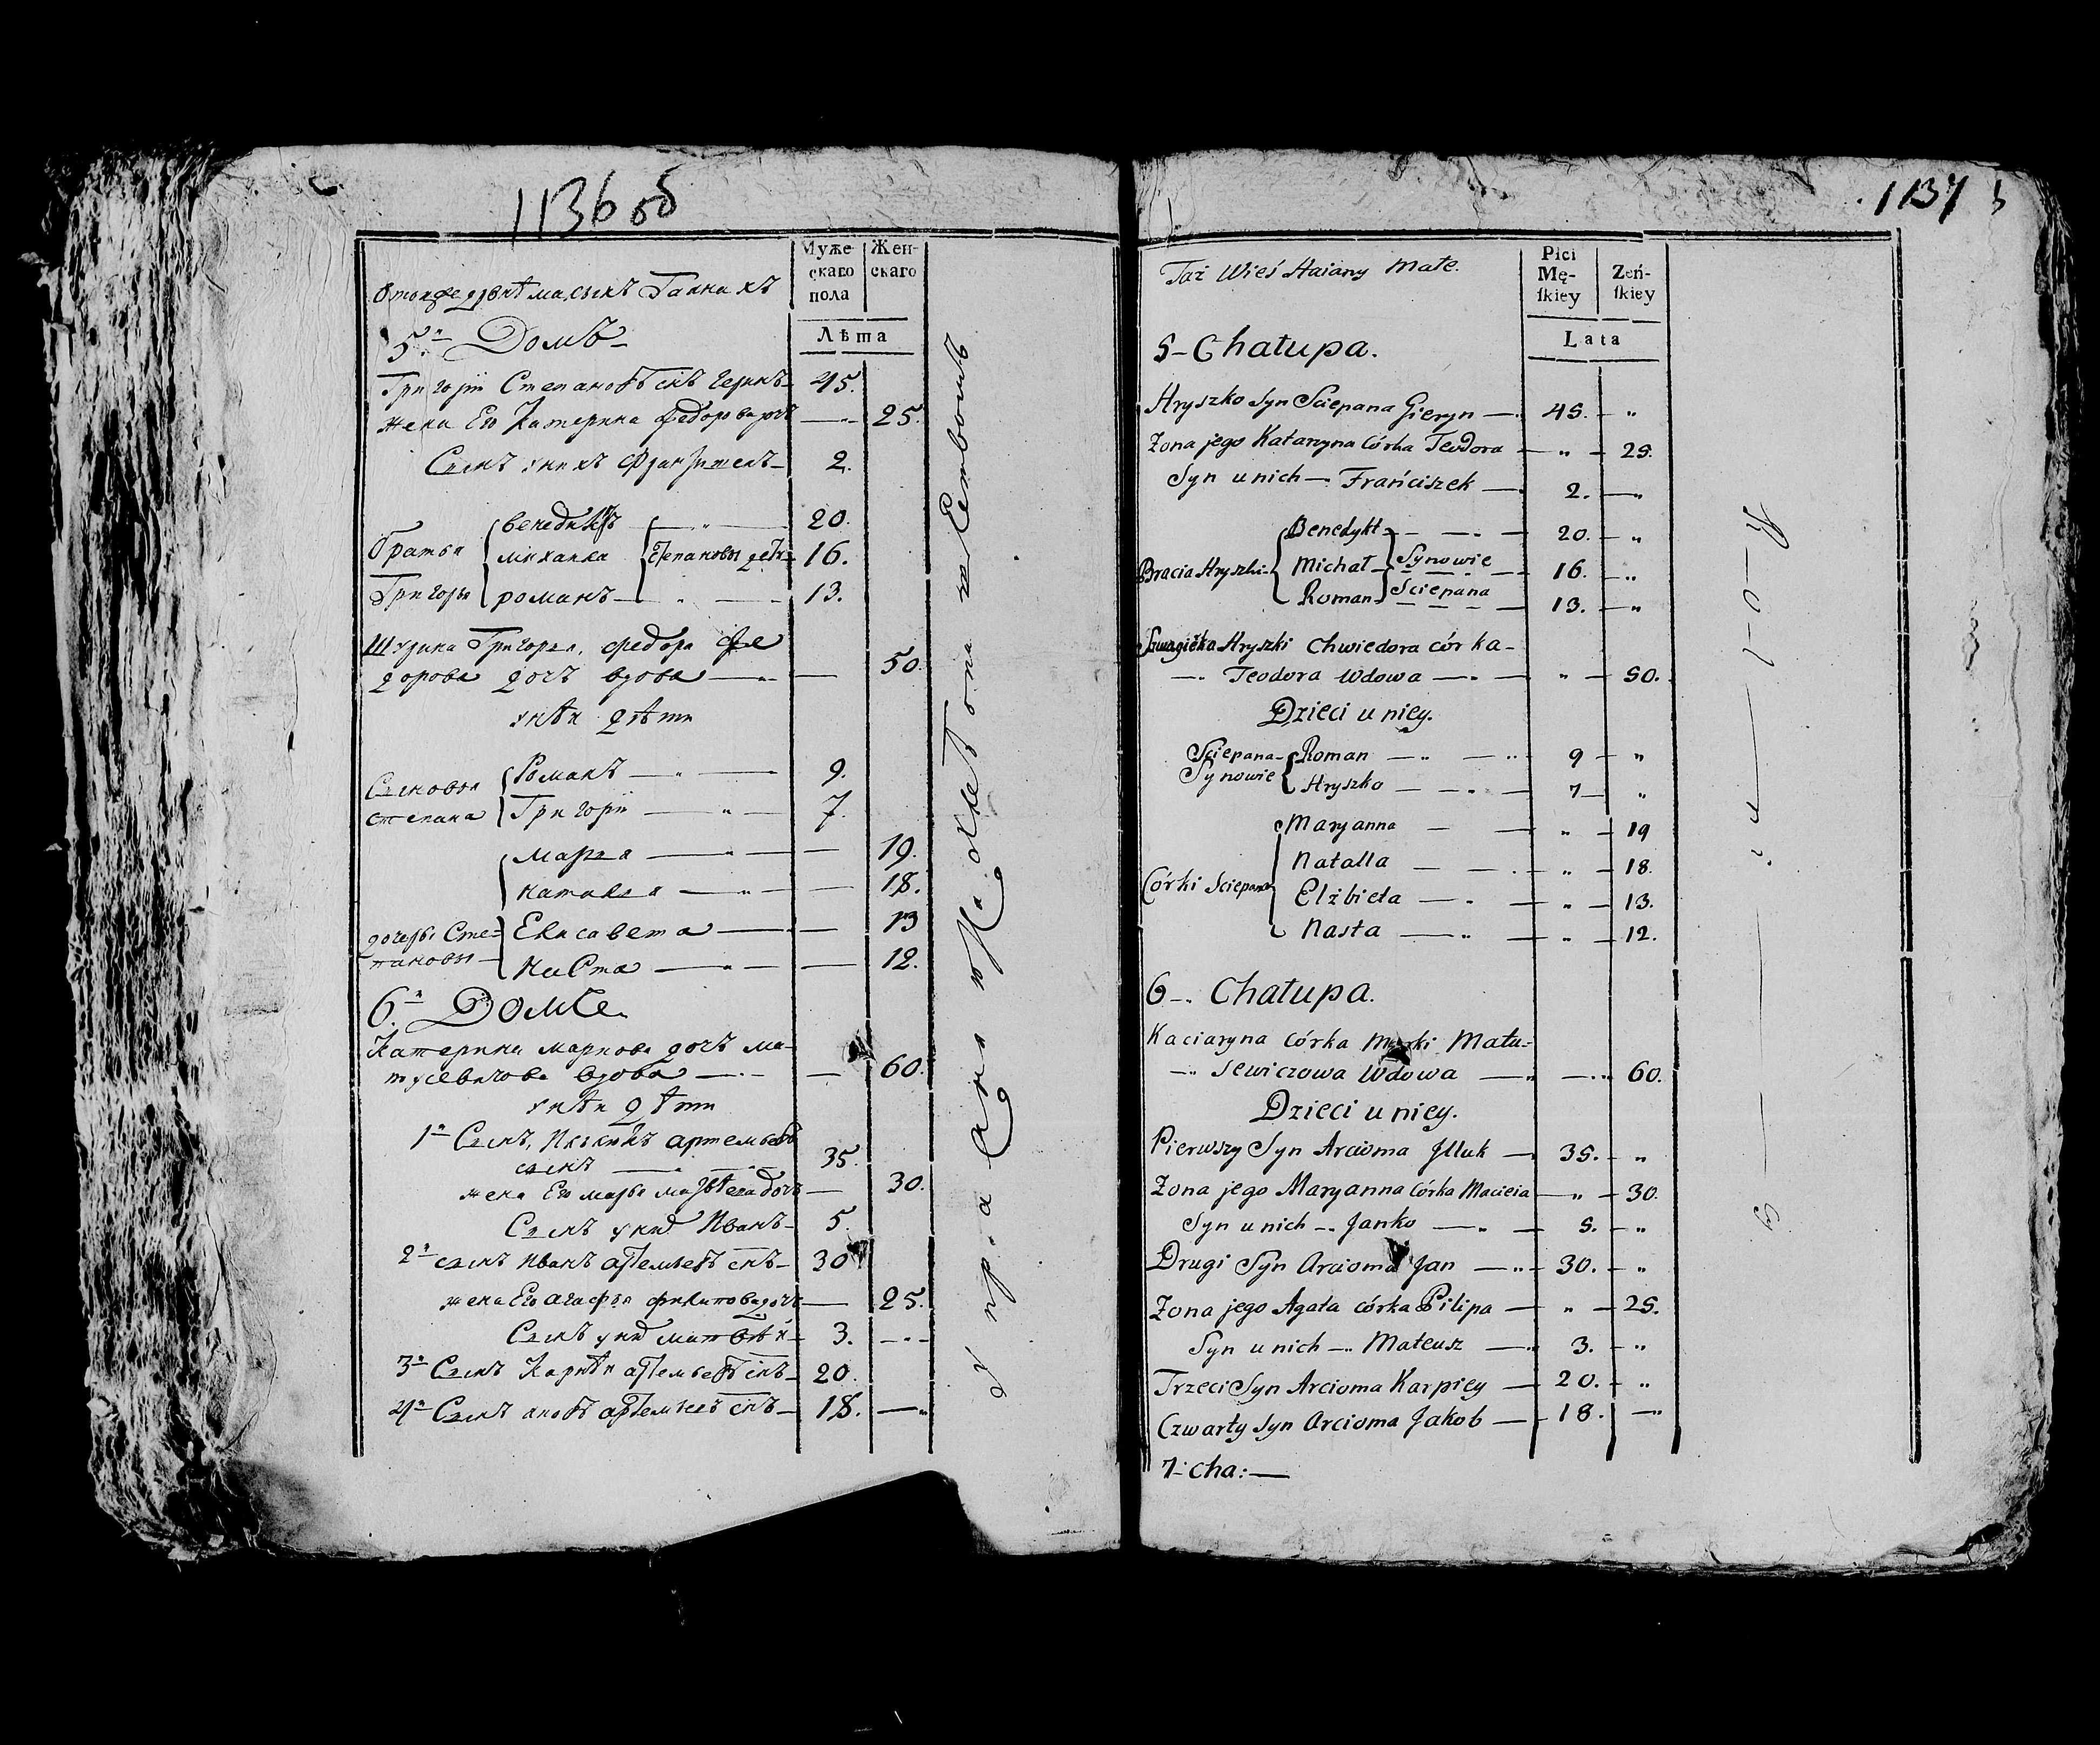 1136 об
Муже-
скаго
пола
Жен-
скаго
Лѣта
5й Домъ
Григорій Степановъ снъ Геринъ 45.
жена Его Катерина Федорова дочь 25.
Сынъ у нихъ Францишекъ 2.
Венедиктъ 20.
Братья Михайла Степановы дети 16.
Григорья Романъ 13.
Григорья, Федора Фе
дорова дочь вдова 50.
у нѣй дѣти
Сыновья Романъ 9.
степана Григорій 7.
Марья 19.
Наталья 18.
дочеры Сте= Елисавета 13
пановы Наста 12.
6й Домъ
Катерина Маркова дочь Ма-
тусевичова вдова 60.
у нѣй дѣти
1й Сынъ, Артемьевъ
сынъ 35.
жена Его Марья Матвѣева дочь 30.
Сынъ у них Иванъ 5.
2й сынъ Иванъ Артемьевъ снъ 30
жена Его Агафья Филипова дочь 25.
Сынъ у них Матвѣй 3.
3й Сынъ Карпѣй Артемьевъ снъ 20.
4й Сынъ Яковъ Артемьевъ снъ 18.
1137
Taż Wieś Haiany Małe.
Płci
Mę-
ſkiey
Zeń-
ſkiey
Lata
5 - Chałupa.
Hryszko Syn Sciepana Gieryn — 45. — "
Zona jego Katarzyna Córka Teodora — " — 25.
Syn u nich — Frańciszek — 2. — "
Benedykt — 20. — "
Bracia Hryszki Michał Synowie — 16. — "
Roman Sciepana — 13. — "
Szwagierka Hryszki Chwiedora córka-
— Teodora Wdowa — " — 50.
Dzieci u niey.
Sciepana Roman — 9 — "
Synowie Hryszko — 7 — "
Maryanna — " — 19
Natalla — " — 18.
Córki Sciepana Elżbieta — " — 13.
Nasta — " — 12.
6 - Chałupa.
Kaciaryna Córka Marki Matu=
— sewiczowa Wdowa — 60.
Dzieci u niey.
Pierwszy Syn Arcioma Illuk — 35. — "
Zona jego Maryanna Córka Macieia — " — 30.
Syn u nich — Janko — 5. — "
Drugi Syn Arcioma Jan — 30. — "
Zona jego Agata córka Pilipa — " — 25.
Syn u nich — Mateusz — 3. — "
Trzeci Syn Arcioma Karpiey — 20. — "
Czwarty Syn Arcioma Jakob — 18. — "
7- cha: —